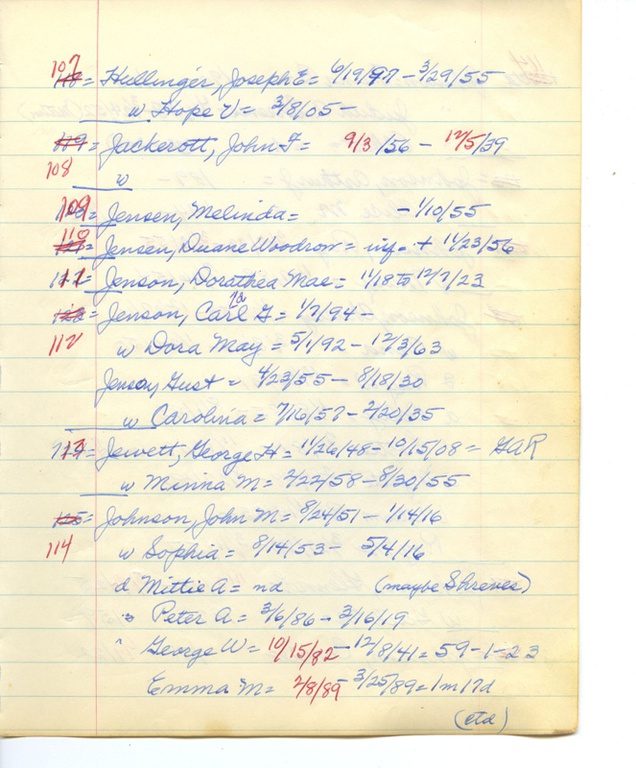 107
118= Hullinger, Joseph E= 6/19/97 - 3/29/55
w Hope V= 3/8/05 -
119= Jackerott, John F= 9/3/56 - 12/5/39
108 w
109 = Jensen, Melinda= - 1/10/55
110
121= Jensen, Duane Woodrow = inf. + 11/23/56
111= Jenson, Dorathea Mae= 11/18 to 12/7/23
= Jenson, Carl G= 1/7/94 -
112 w Dora May = 5/1/92 - 12/3/63
Jenson, Gust = 4/23/55 - 8/18/30
w Carolina = 7/16/57 - 2/20/35
113= Jewett, George H= 11/26/48 - 10/15/08 = GAR
w Minna M= 2/22/58 - 8/30/55
125= Johnson, John M= 8/24/51 - 1/14/16
114 w Sophia = 8/14/53 - 5/4/16
d Mittie A= nd (maybe Shreves)
s Peter A= 3/6/86 - 3/16/19
" George W= 10/15/82 - 12/8/41= 59-1-23
Emma M= 2/8/89 - 3/25/89= 1m 17d
(ctd)